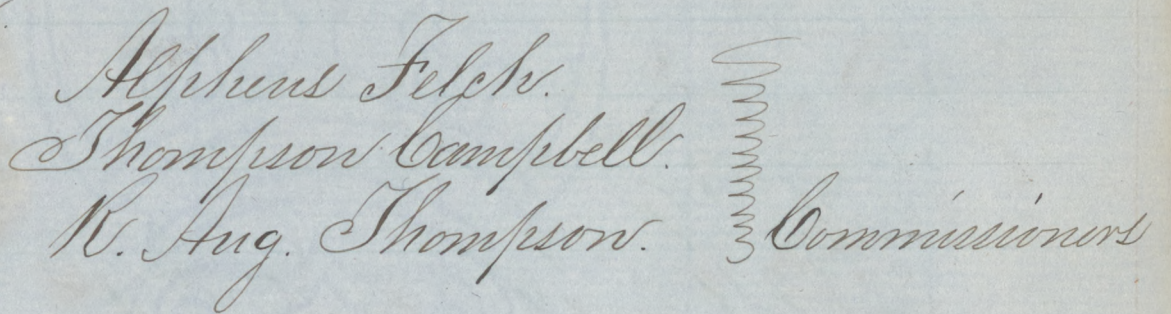 Alpheus Felch.
Thompson Campbell.
R. Aug. Thompson. Commissioners